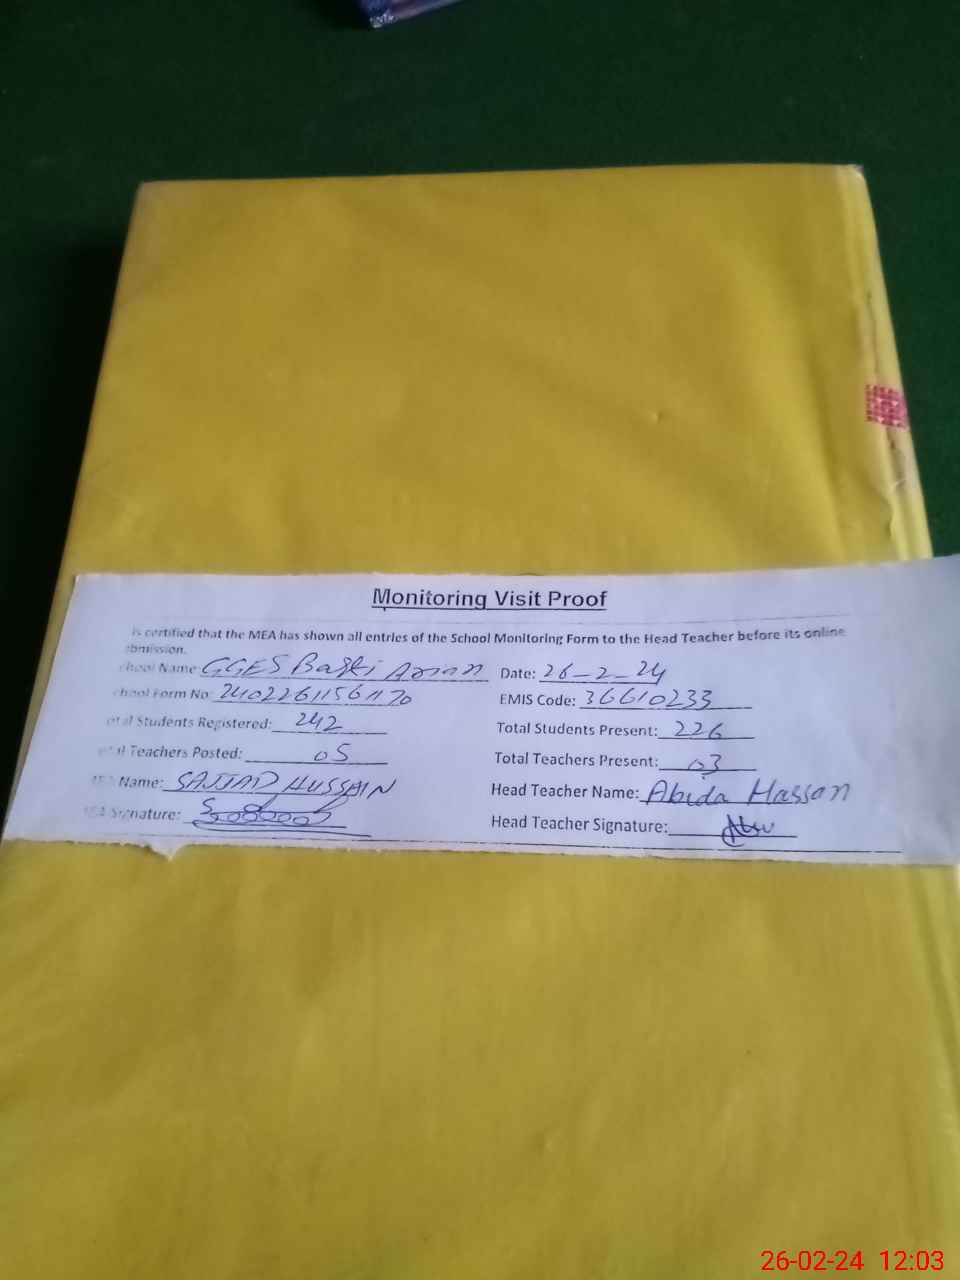 Monitoring Visit Proof
is certified that the MEA has shown all entries of the School Monitoring Form to the Head Teacher before its online
bmission.
chool Name: GGES Basti Date: 26-2-24
chool Form No: EMIS Code: 36610233
otal Students Registered: 242 Total Students Present: 226
tal Teachers Posted: 05 Total Teachers Present: 03
MEA Name: SAJJAD HUSSAIN Head Teacher Name: Abida Hassan
MEA Signature: Head Teacher Signature:
26-02-24 12:03